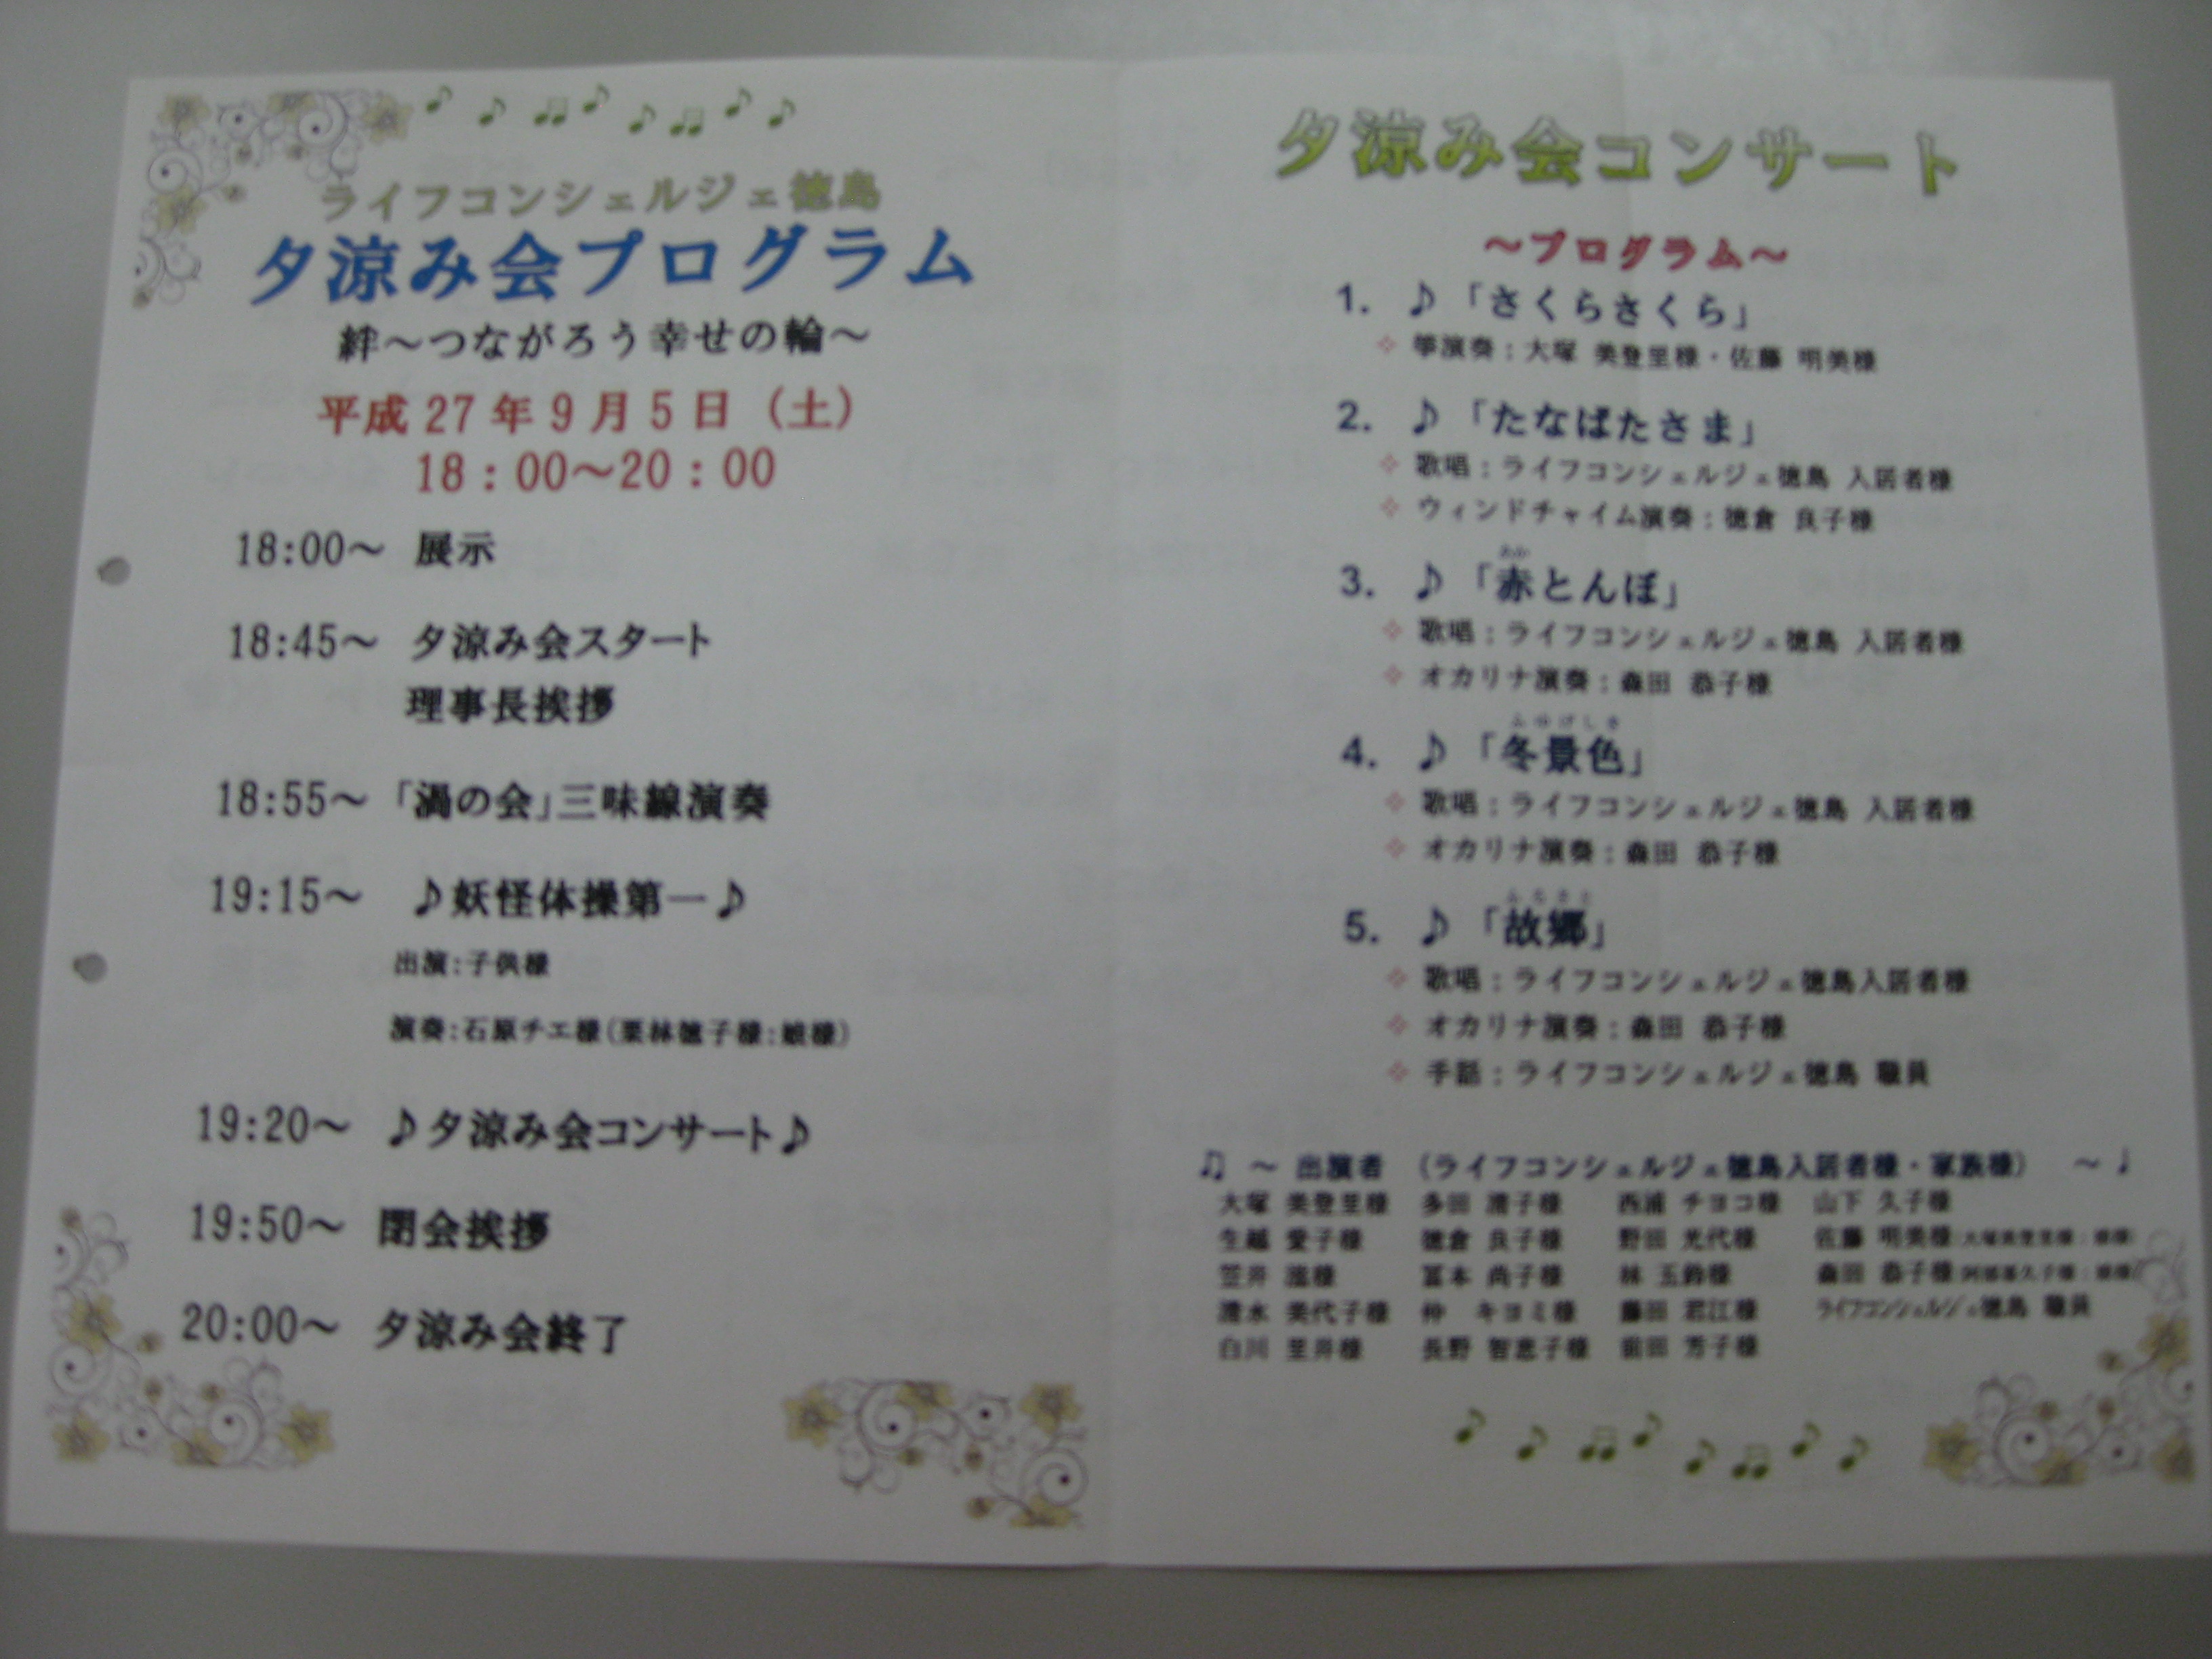 ライフコンシェルジェ徳島
夕涼み会プログラム
絆～つながろう幸せの輪～
平成27年9月5日（土）
18：00～20：00
18:00～ 展示
18:45～ 夕涼み会スタート
理事長挨拶
18:55～「渦の会」三味線演奏
19:15～ ♪妖怪体操第一♪
出演:子供様
演奏:石原チエ様(栗林徳子様:娘様)
19:20～ ♪夕涼み会コンサート♪
19:50～ 閉会挨拶
20:00～ 夕涼み会終了
夕涼み会コンサート
～プログラム～
1. ♪「さくらさくら」
箏演奏：大塚 美登里様・佐藤 明美様
2. ♪「たなばたさま」
歌唱：ライフコンシェルジェ徳島 入居者様
ウィンドチャイム演奏：徳倉 良子様
あか
3. ♪「赤とんぼ」
歌唱：ライフコンシェルジェ徳島 入居者様
オカリナ演奏：森田 恭子様
ふゆげしき
4. ♪「冬景色」
歌唱：ライフコンシェルジェ徳島 入居者様
オカリナ演奏：森田 恭子様
ふるさと
5. ♪「故郷」
歌唱：ライフコンシェルジェ徳島入居者様
オカリナ演奏：森田 恭子様
手話：ライフコンシェルジェ徳島 職員
♫ ～ 出演者 （ライフコンシェルジェ徳島入居者様・家族様） ～ ♩
大塚 美登里様 多田 清子様 西浦 チヨコ様 山下 久子様
生越 愛子様 徳倉 良子様 野田 光代様 佐藤 明美様(大塚美登里様：娘様)
笠井 様 冨本 尚子様 林 玉鈴様 森田 恭子様
清水 美代子様 仲 キヨミ様 藤田 君江様 ライフコンシェルジェ徳島 職員
白川 里井様 長野 智恵子様 前田 芳子様